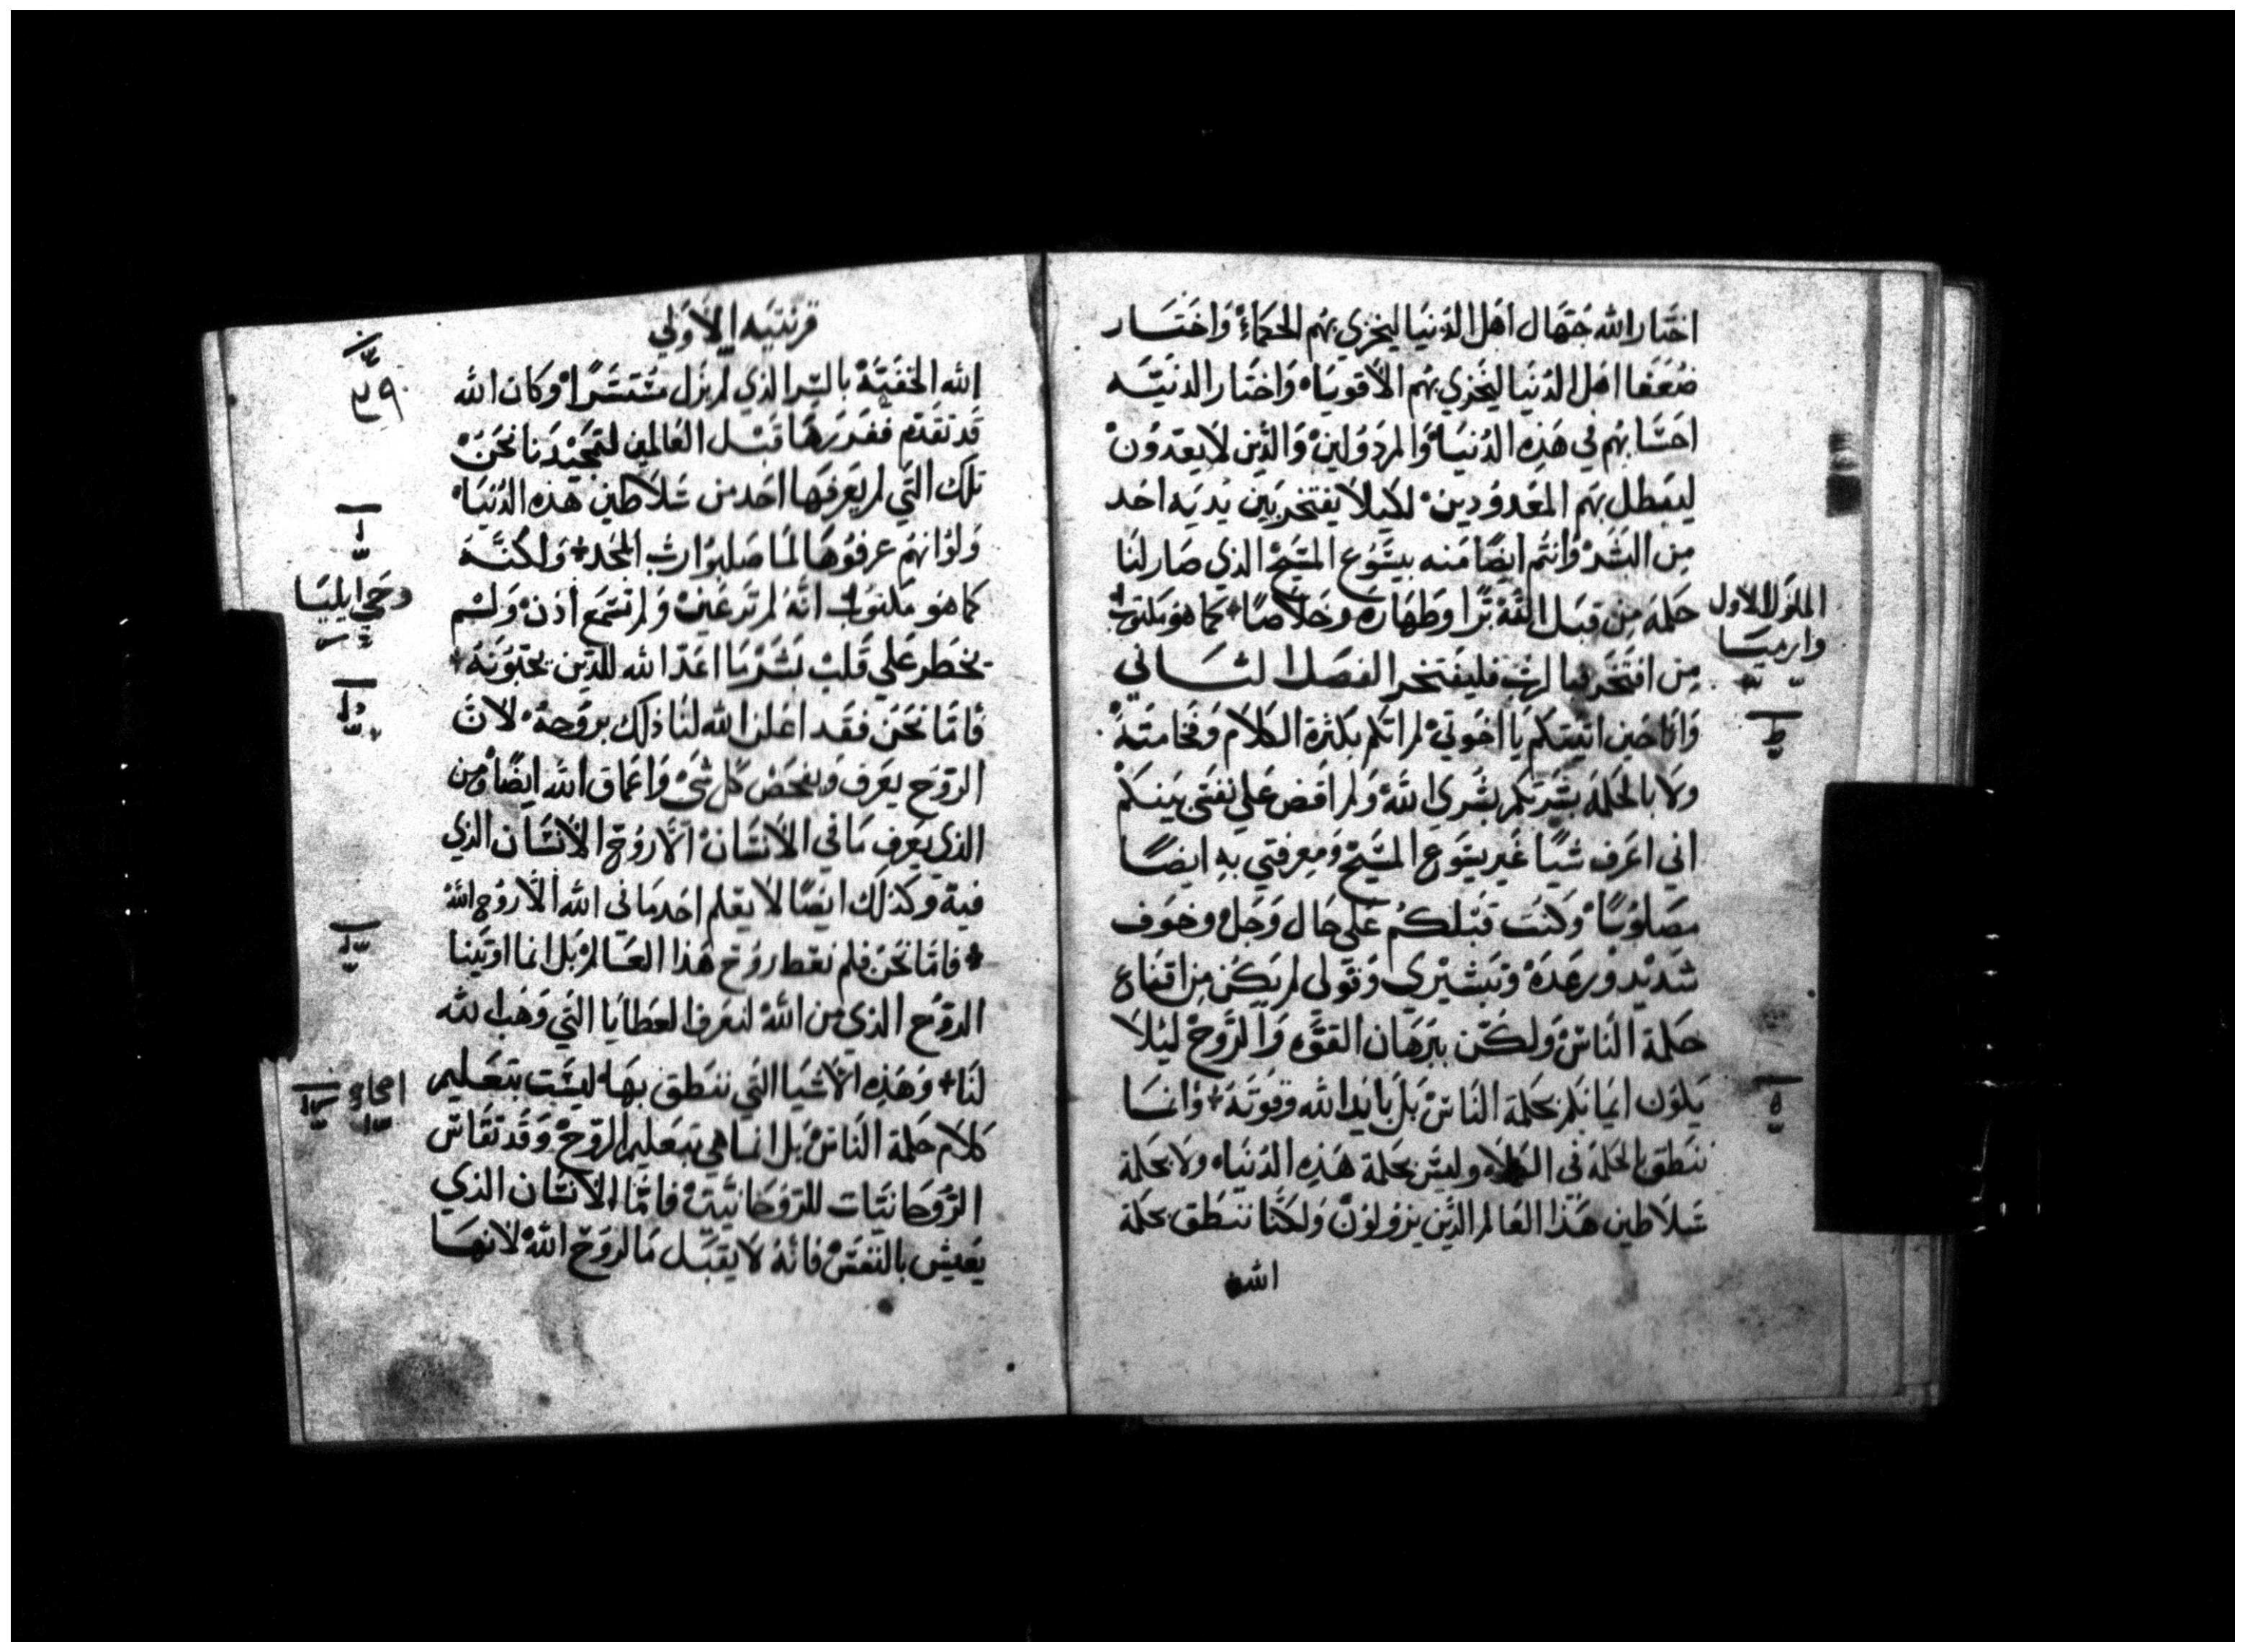 اختار الله جهال اهل الدنيا ليخزي بهم الحكماء واختار
ضعفا اهل الدنيا ليخزي بهم الاقويا، واختار الدنيه
احسابهم في هذه الدنيا والمرذولين والذين لا يعدون
ليبطل بهم المعدودين لكيلا يفتخر بين يديه احد
من البشر وانتم ايضا منه بيشوع المسيح الذي صار لنا
حكمه من قبل الله برا وطهاره وخلاصا كما هو مكتوب
من افتخر فبالرب فليفتخر الفصل الثاني
وانا حين اتيتكم يا اخوتي لم اتكم بكثرة الكلام وفخامته
ولا بالحكمه بشرتكم بشري الله ولم اقض علي نفسي بينكم
اني اعرف شيا غير يشوع المسيح ومعرفتي به ايضا
مصلوبا وكنت قبلكم علي حال وجل وخوف
شديد ورعدة وتبشيري وقولي لم يكن من اقناع
حكمة الناس ولكن ببرهان القوه والروح ليلا
يكون ايمانكم بحكمة الناس بل بايد الله وقوته وانما
ننطق بالحكمة في الكملاء وليس بحكمة هذه الدنيا، ولا بحكمة
سلاطين هذا العالم الذين يزولون ولكننا ننطق بحكمة
الله
الملوك الاول
وارميا
ط
ه
قرنتيه الاولي
الله الخفية بالسر الذي لم يزل مستترا وكان الله
قد تقدم ففدرها قبل العالمين لتمجيدنا نحن
تلك التي لم يعرفها احد من سلاطين هذه الدنيا،
ولو انهم عرفوها لما صلبوا رب المجد ولكنه
كما هو مكتوب انه لم تر عين ولم تسمع اذن ولم
يخطر علي قلب بشر ما اعد الله للذين يحبونه
فاما نحن فقد اعلن الله لنا ذلك بروحه لان
الروح يعرف ويفحص كل شي واعماق الله ايضا ومن
الذي يعرف ما في الانسان الا روح الانسان الذي
فيه وكذلك ايضا لا يعلم احد ما في الله الا روح الله
فاما نحن فلم نعط روح هذا العالم بل انما اوتينا
الروح الذي من الله لنعرف العطايا التي وهب الله
لنا وهذه الاشيا التي ننطق بها ليست بتعليم
كلام حكمة الناس بل انما هي بتعليم الروح وقد تقاس
الروحانيات للروحانيين فاما الانسان الذي
يعيش بالنفس فانه لا يقبل ما لروح الله لانها
٣٩
وحي ايليا